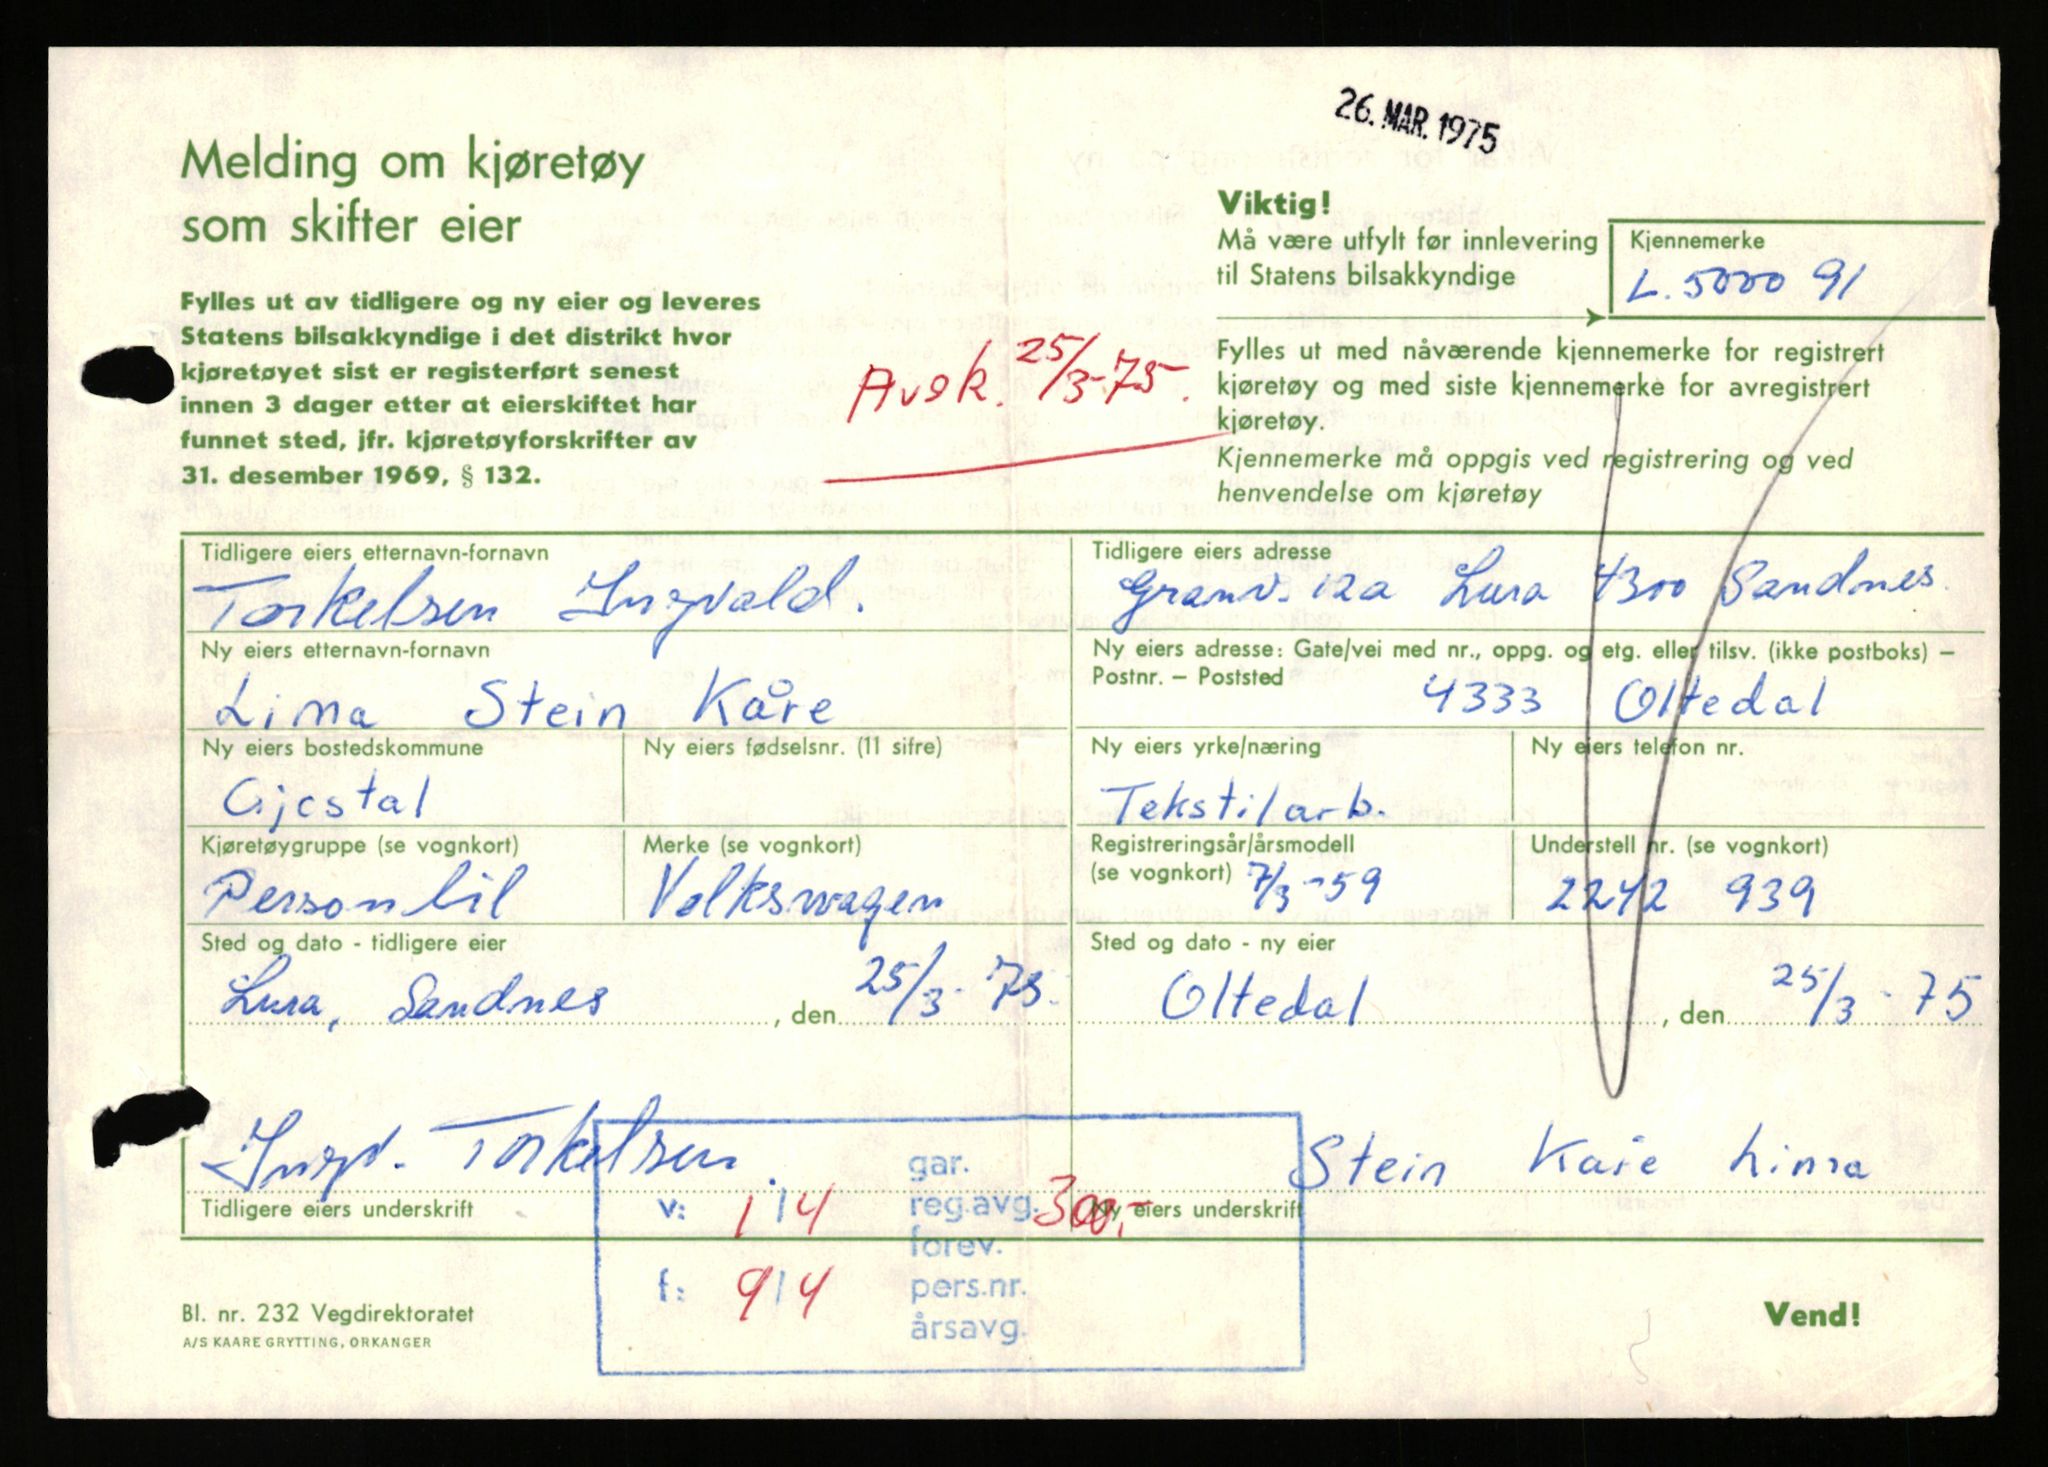 26. MAR. 1975
Melding om kjøretøy
som skifter eier
Fylles ut av tidligere og ny eier og leveres
Statens bilsakkyndige i det distrikt hvor
kjøretøyet sist er registerført senest
innen 3 dager etter at eierskiftet har
funnet sted, jfr. kjøretøyforskrifter av
31. desember 1969, § 132.
Avsk. 25/3-75.
Viktig!
Må være utfylt før innlevering
til Statens bilsakkyndige
Kjennemerke
L. 500091
Fylles ut med nåværende kjennemerke for registrert
kjøretøy og med siste kjennemerke for avregistrert
kjøretøy.
Kjennemerke må oppgis ved registrering og ved
henvendelse om kjøretøy
Tidligere eiers etternavn-fornavn
Torkelsen Ingvald.
Tidligere eiers adresse
Granv. 12a Lura 4300 Sandnes.
Ny eiers etternavn-fornavn
Lima Stein Kåre
Ny eiers adresse: Gate/vei med nr., oppg. og etg. eller tilsv. (ikke postboks) –
Postnr. – Poststed
4333 Oltedal
Ny eiers bostedskommune
Gjestal
Ny eiers fødselsnr. (11 sifre)
Ny eiers yrke/næring
Tekstilarb.
Ny eiers telefon nr.
Kjøretøygruppe (se vognkort)
Personbil
Merke (se vognkort)
Volkswagen
Registreringsår/årsmodell
(se vognkort) 7/3-59
Understell nr. (se vognkort)
2242 939
Sted og dato - tidligere eier
Lura, Sandnes , den 25/3-75.
Sted og dato - ny eier
Oltedal , den 25/3-75
Ingv. Torkelsen
Tidligere eiers underskrift
Stein Kåre Lima
Ny eiers underskrift
gar.
v: 1/4 reg.avg. 300,-
forev.
f: 9/4 pers.nr.
årsavg.
Bl. nr. 232 Vegdirektoratet
A/S KAARE GRYTTING, ORKANGER
Vend!